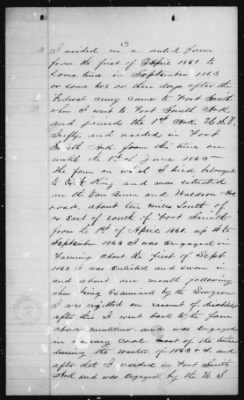 (3)
2 I resided in a rented farm
from the first of April 1861 to
some time in September 1863
or some two or three days after the
Federal army came to Fort Smith
when I went to Fort Smith Ark
and joined the 1st Ark U.S.V.
Infty, and resided in Fort
Smith Ark from this time on
until the 1st of June 1865
The farm on which I lived belonged
to King and was situated
on the and Waldron
road, about ten miles South of
or East of south of Fort Smith
from the 1st of April 1861 up to
September 1863 I was engaged in
farming about the first of Sept
1863 I was enlisted and sworn in
and about one month following
when being examined by the Surgeon
I was rejected on account of
after this I went back to the farm
above mentioned and was engaged
in coal most of the time
during the winter of 1863 & 4 and
after that I resided in Fort Smith
Ark and was engaged by the U S